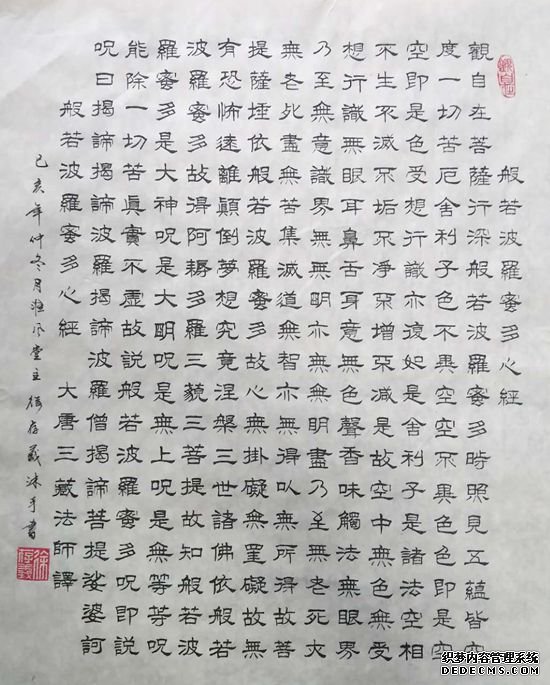 般若波羅蜜多心經
觀自在菩薩行深般若波羅蜜多時照見五蘊皆空
度一切苦厄舍利子色不異空空不異色色即是空
空即是色受想行識亦復如是舍利子是諸法空相
不生不滅不垢不淨不增不減是故空中無色無受
想行識無眼耳鼻舌身意無色聲香味觸法無眼界
乃至無意識界無無明亦無無明盡乃至無老死亦
無老死盡無苦集滅道無智亦無得以無所得故菩
提薩埵依般若波羅蜜多故心無掛礙無罣礙故無
有恐怖遠離顛倒夢想究竟涅槃三世諸佛依般若
波羅蜜多故得阿耨多羅三藐三菩提故知般若波
羅蜜多是大神呪是大明呪是無上呪是無等等呪
能除一切苦眞實不虛故説般若波羅蜜多呪即説
呪曰揭諦揭諦波羅揭諦波羅僧揭諦菩提娑婆訶
般若波羅蜜多心經 大唐三藏法師譯
己亥年仲冬月風堂主徐存義沐手書
徐存義
织梦内容管理系统
DEDECMS.COM